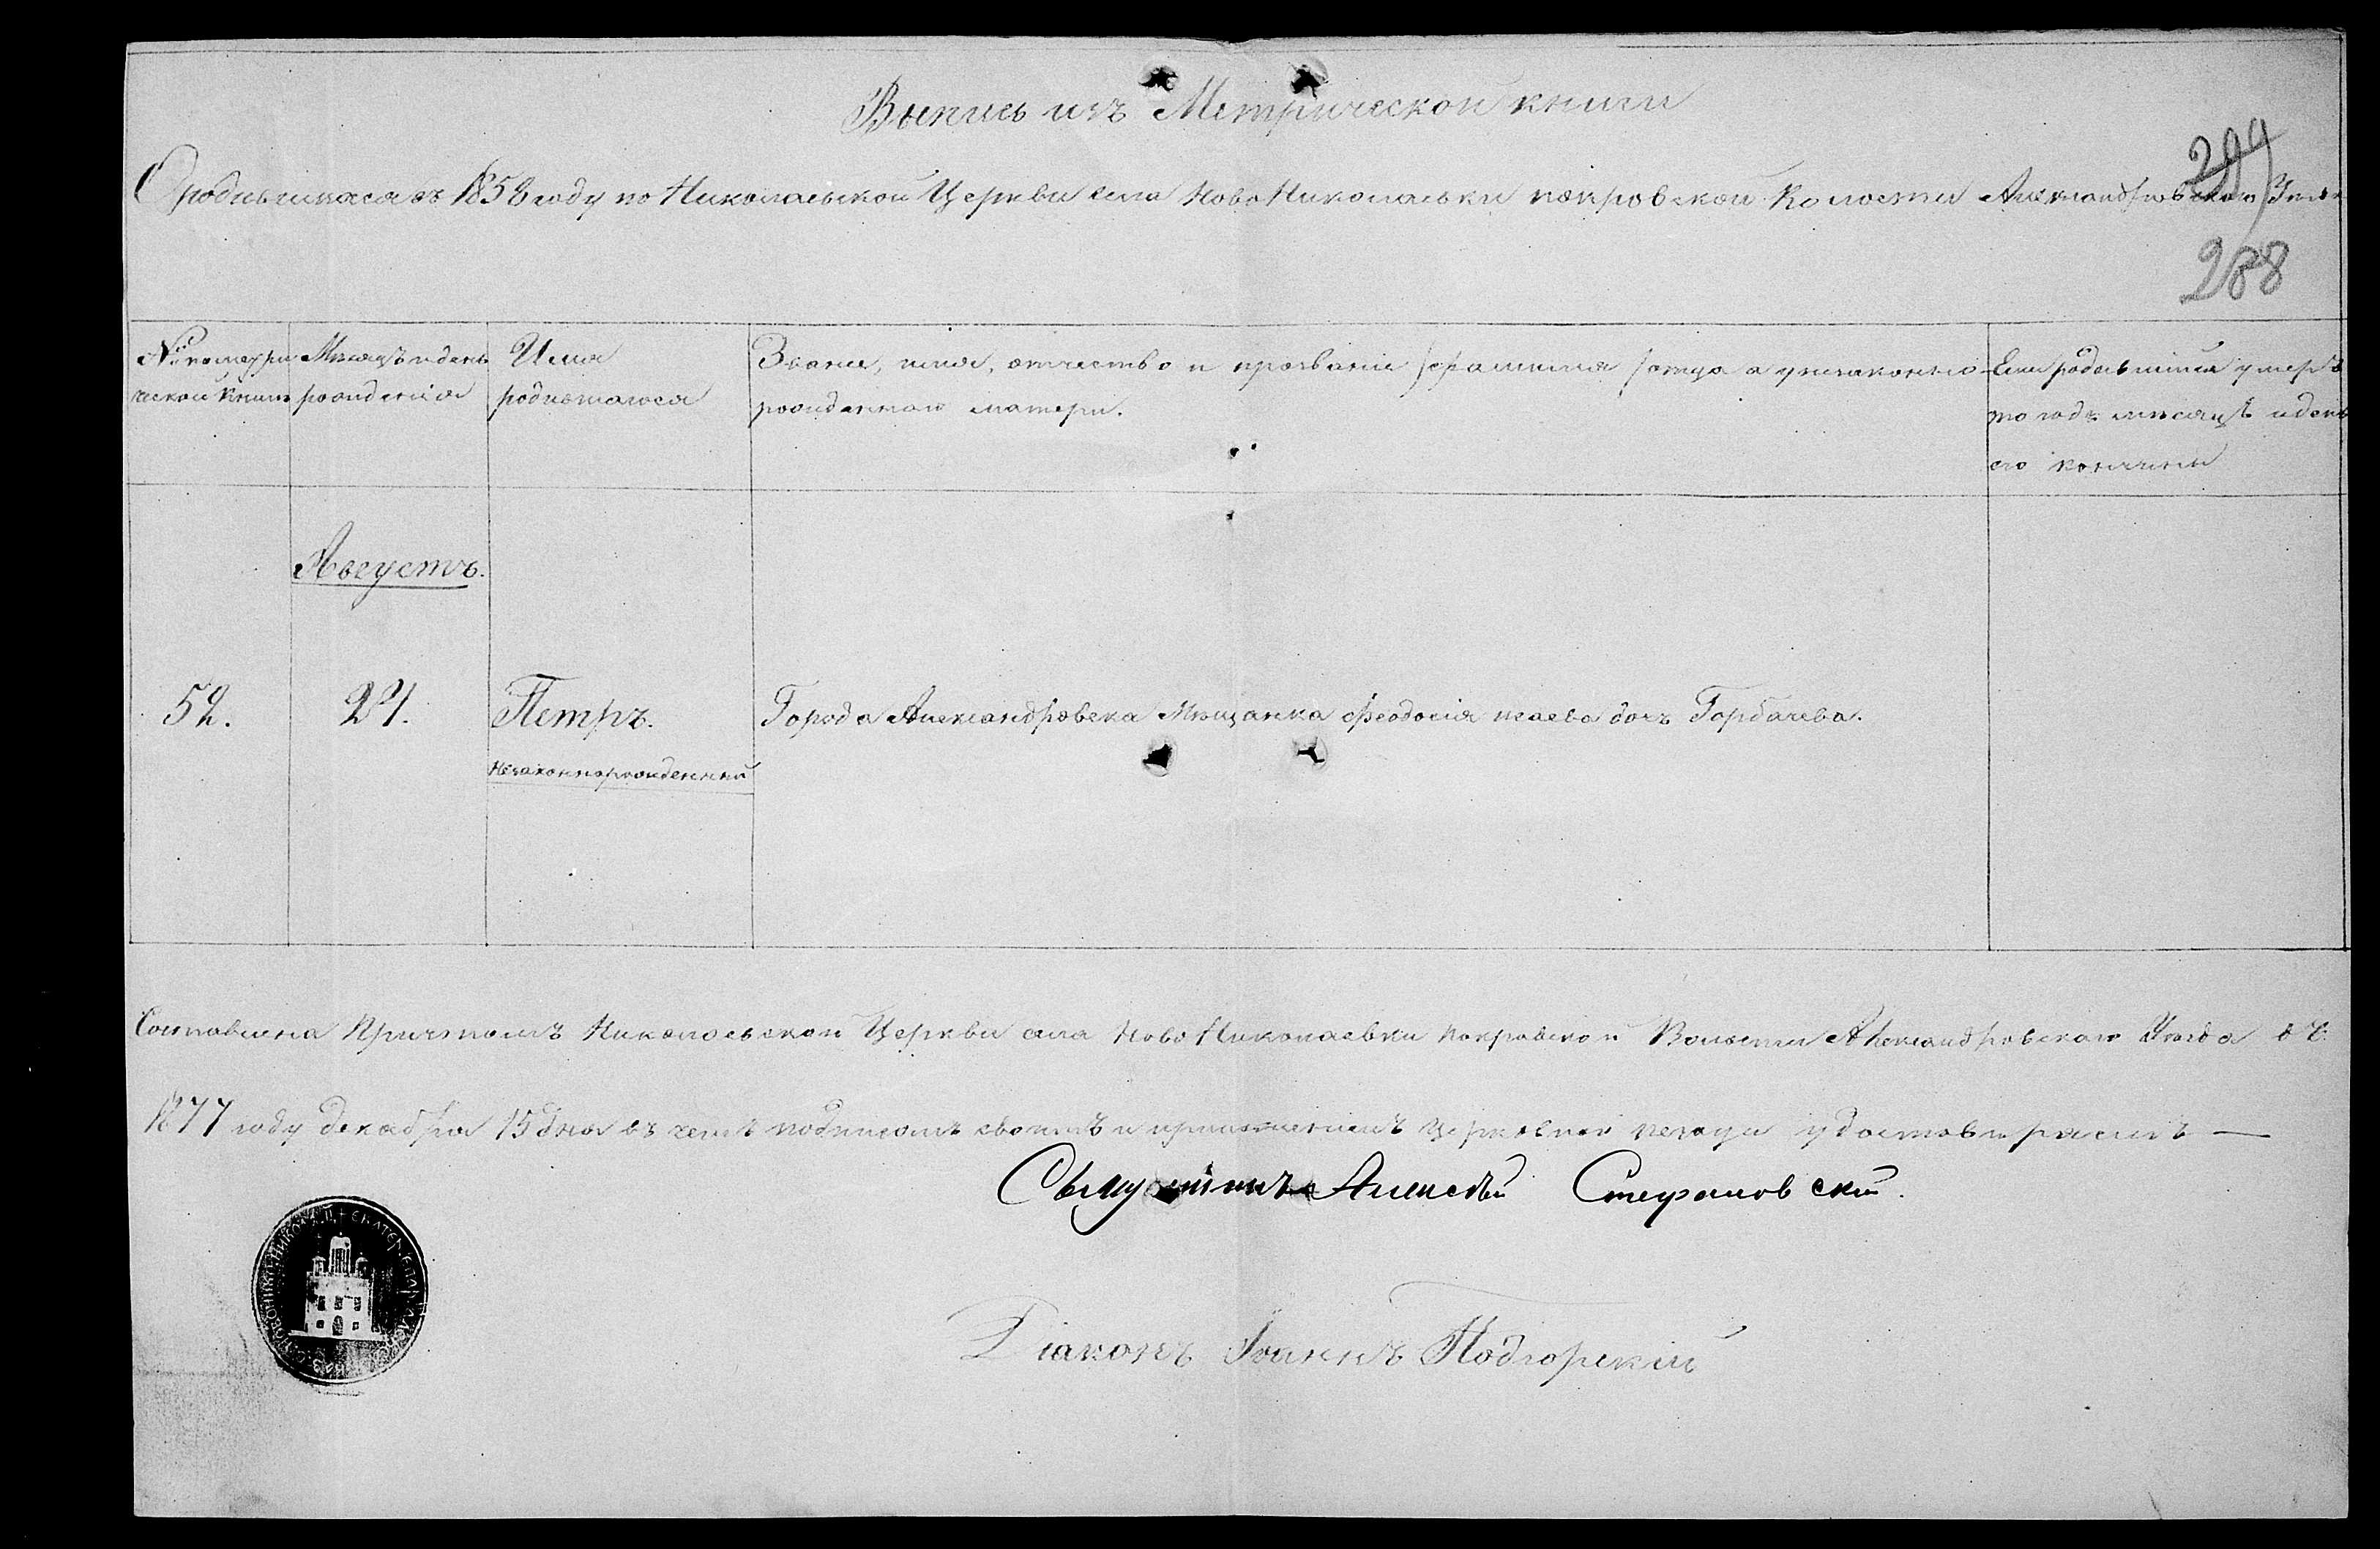 Выпись изъ Метрической книги
О родившихся въ 1858 году по Николаевской Церкви села Ново Николаевки покровской Волости Александровскаго
288
№ по метри Мѣсяцъ и день Имя Званіе, имя, отчество и прозваніе /фамилия/ отца а у незаконно Если родившійся умеръ
ческой книгѣ рожденія родившагося рожденнаго матери. то годъ мѣсяцъ и день
его кончины
Августъ.
52. 24. Петръ. Города Александровска Мѣщанка Феодосія исаева дочь Горбачева.
Незаконнорожденный
Составлена Причтомъ Николаевской Церкви села Ново Николаевки Покровской Волости Александровскаго Уѣзда въ
1877 году декабря 15 дня въ чемъ подписомъ своимъ и приложеніемъ церковной печати удостовѣряемъ —
Священникъ Алексѣй Стефановскій.
Діаконъ Іоаннъ Подгорскій